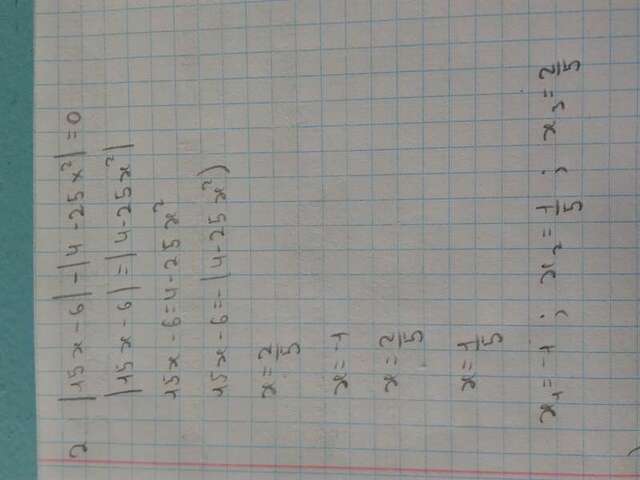 2 |15x-6|-|4-25x²|=0
|15x-6|=|4-25x²|
15x-6=4-25x²
15x-6=-(4-25x²)
x=2/5
x=-1
x=2/5
x=1/5
x₁=-1; x₂=1/5; x₃=2/5